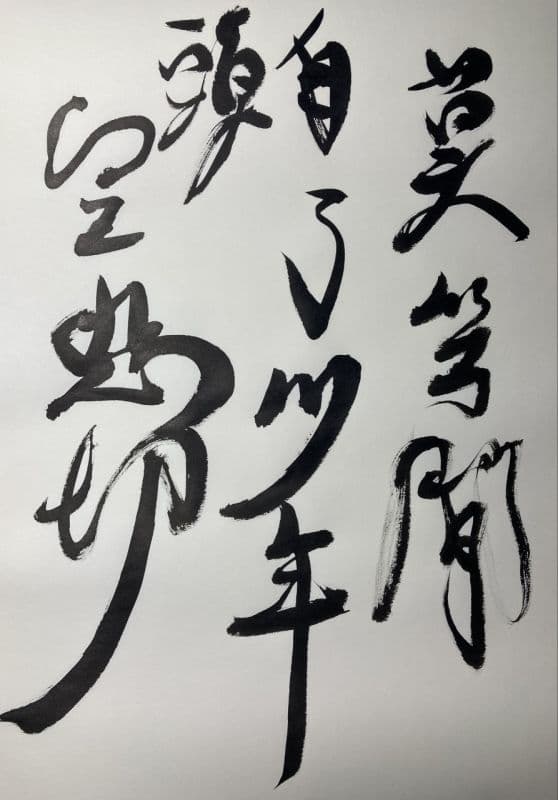 莫等閒
白了少年
頭
空悲切